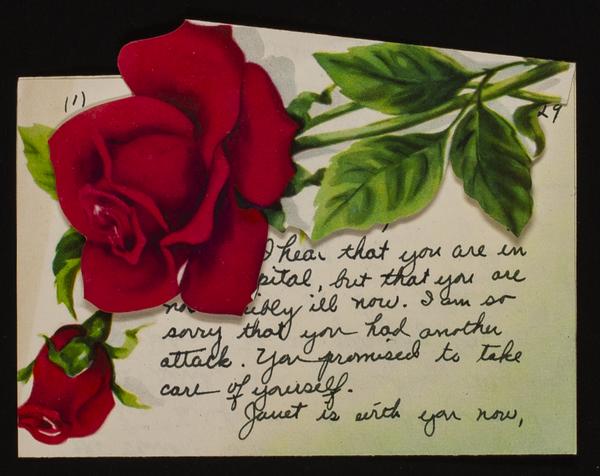 (1)
29
I hear that you are in
pital, but that you are
ibly ill now. I am so
sorry that you had another
attack. You promised to take
care of yourself.
Janet is with you now,